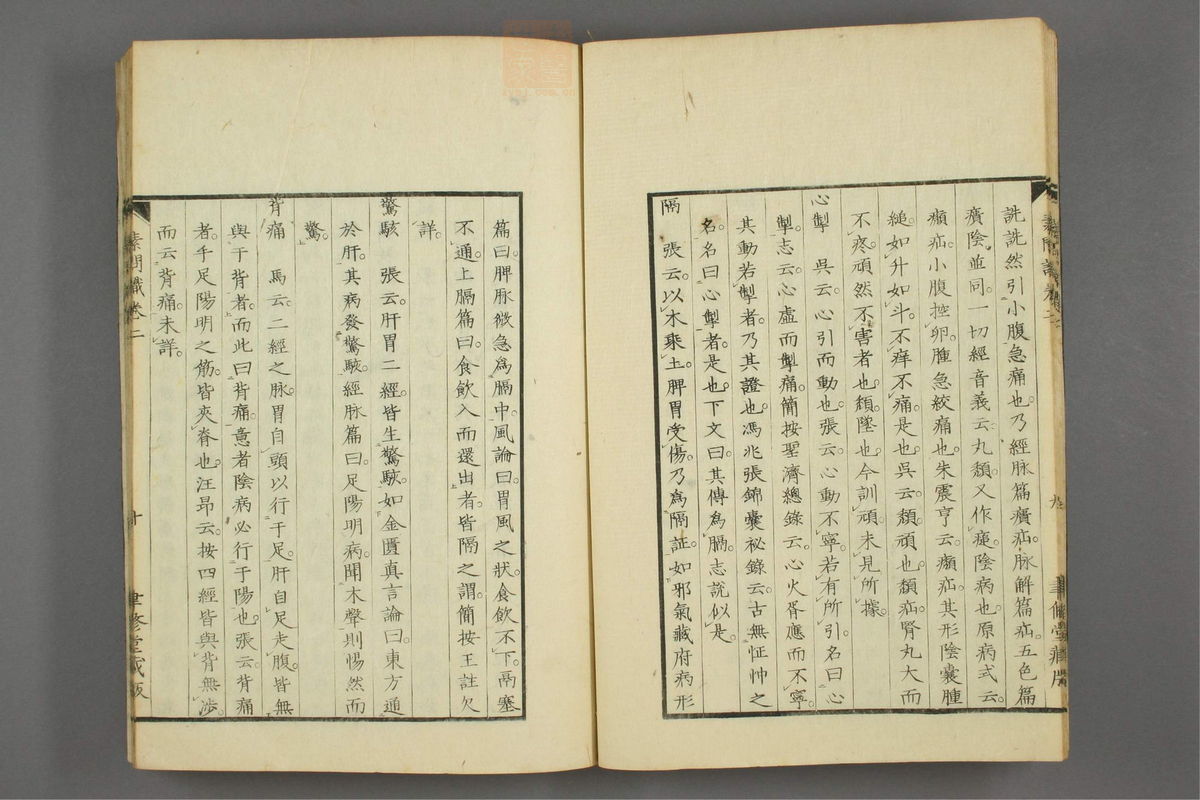 詵詵然引小腹急痛也乃經脉篇㿗疝脉解篇疝五色篇
㿗陰並同一切經音義云丸頹又作㾯陰病也原病式云
癩疝小腹控卵腫急絞痛也朱震亨云癩疝其形陰囊腫
縋如升如斗不痒不痛是也吳云頹頑也頹疝腎丸大而
不疼頑然不害者也頹墜也今訓頑未見所據
心掣 吳云心引而動也張云心動不寧若有所引名曰心
掣志云心虛而掣痛簡按聖濟總錄云心火胥應而不寧
其動若掣者乃其證也馮兆張錦囊祕錄云古無怔忡之
名名曰心掣者是也下文曰其傳為膈志說似是
隔 張云以木乘土脾胃受傷乃為隔証如邪氣藏府病形
素問識卷二
九
聿修堂藏版
篇曰脾脉微急為膈中風論曰胃風之狀食飲不下鬲塞
不通上膈篇曰食飲入而還出者皆隔之謂簡按王註欠
詳
驚駭 張云肝胃二經皆生驚駭如金匱真言論曰東方通
於肝其病發驚駭經脉篇曰足陽明病聞木聲則惕然而
驚
背痛 馬云二經之脉胃自頭以行于足肝自足走腹皆無
與于背者而此曰背痛意者陰病必行于陽也張云背痛
者手足陽明之筋皆夾脊也汪昂云按四經皆與背無涉
而云背痛未詳
素問識卷二
十
聿修堂藏版